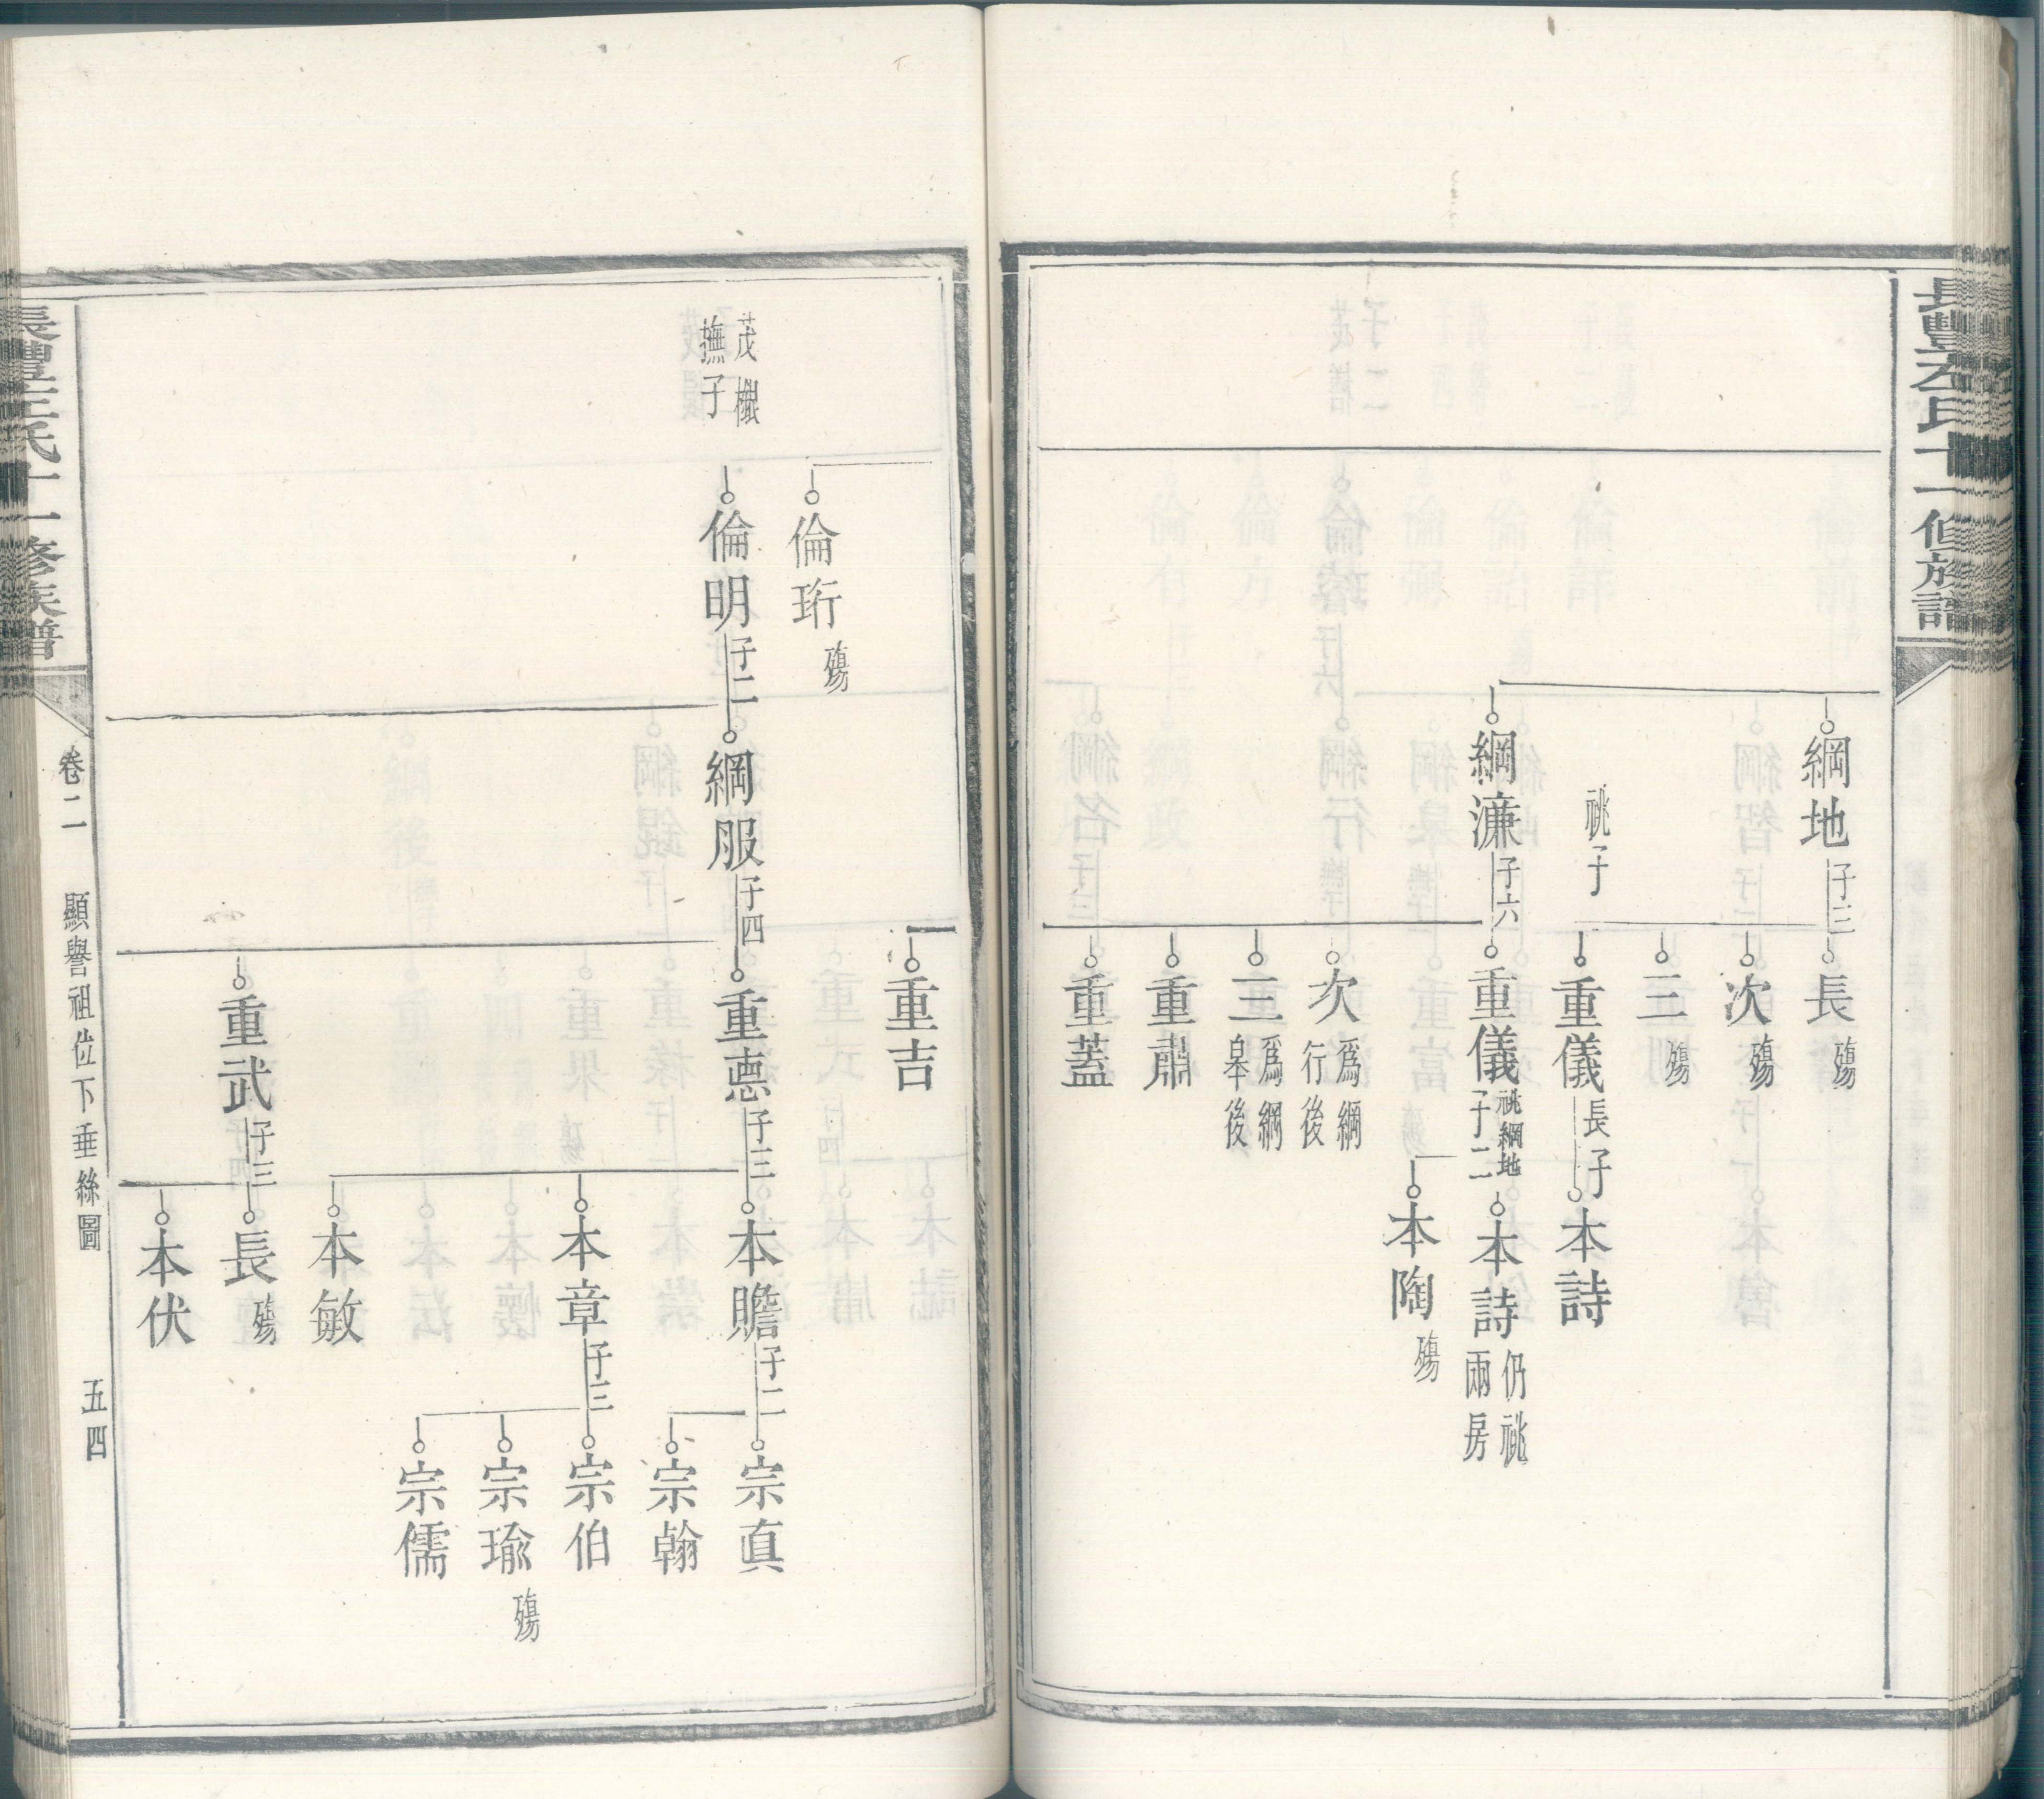 長豐左氏十一修族譜
綱地子三
長殤
次殤
三殤
祧子
重儀長子
本詩
綱濂子六
重儀祧綱地子二
本詩仍祧兩房
本陶殤
次為綱行後
三為綱皋後
重肅
重蓋
重吉
倫珩殤
茂櫼
撫子
倫明子二
綱服子四
重悳子三
本贍子二
宗真
宗翰
本章子三
宗伯
宗瑜殤
宗儒
本敏
重武子三
長殤
本伏
長豐左氏十一修族譜
卷二
顯譽祖位下垂絲圖
五四